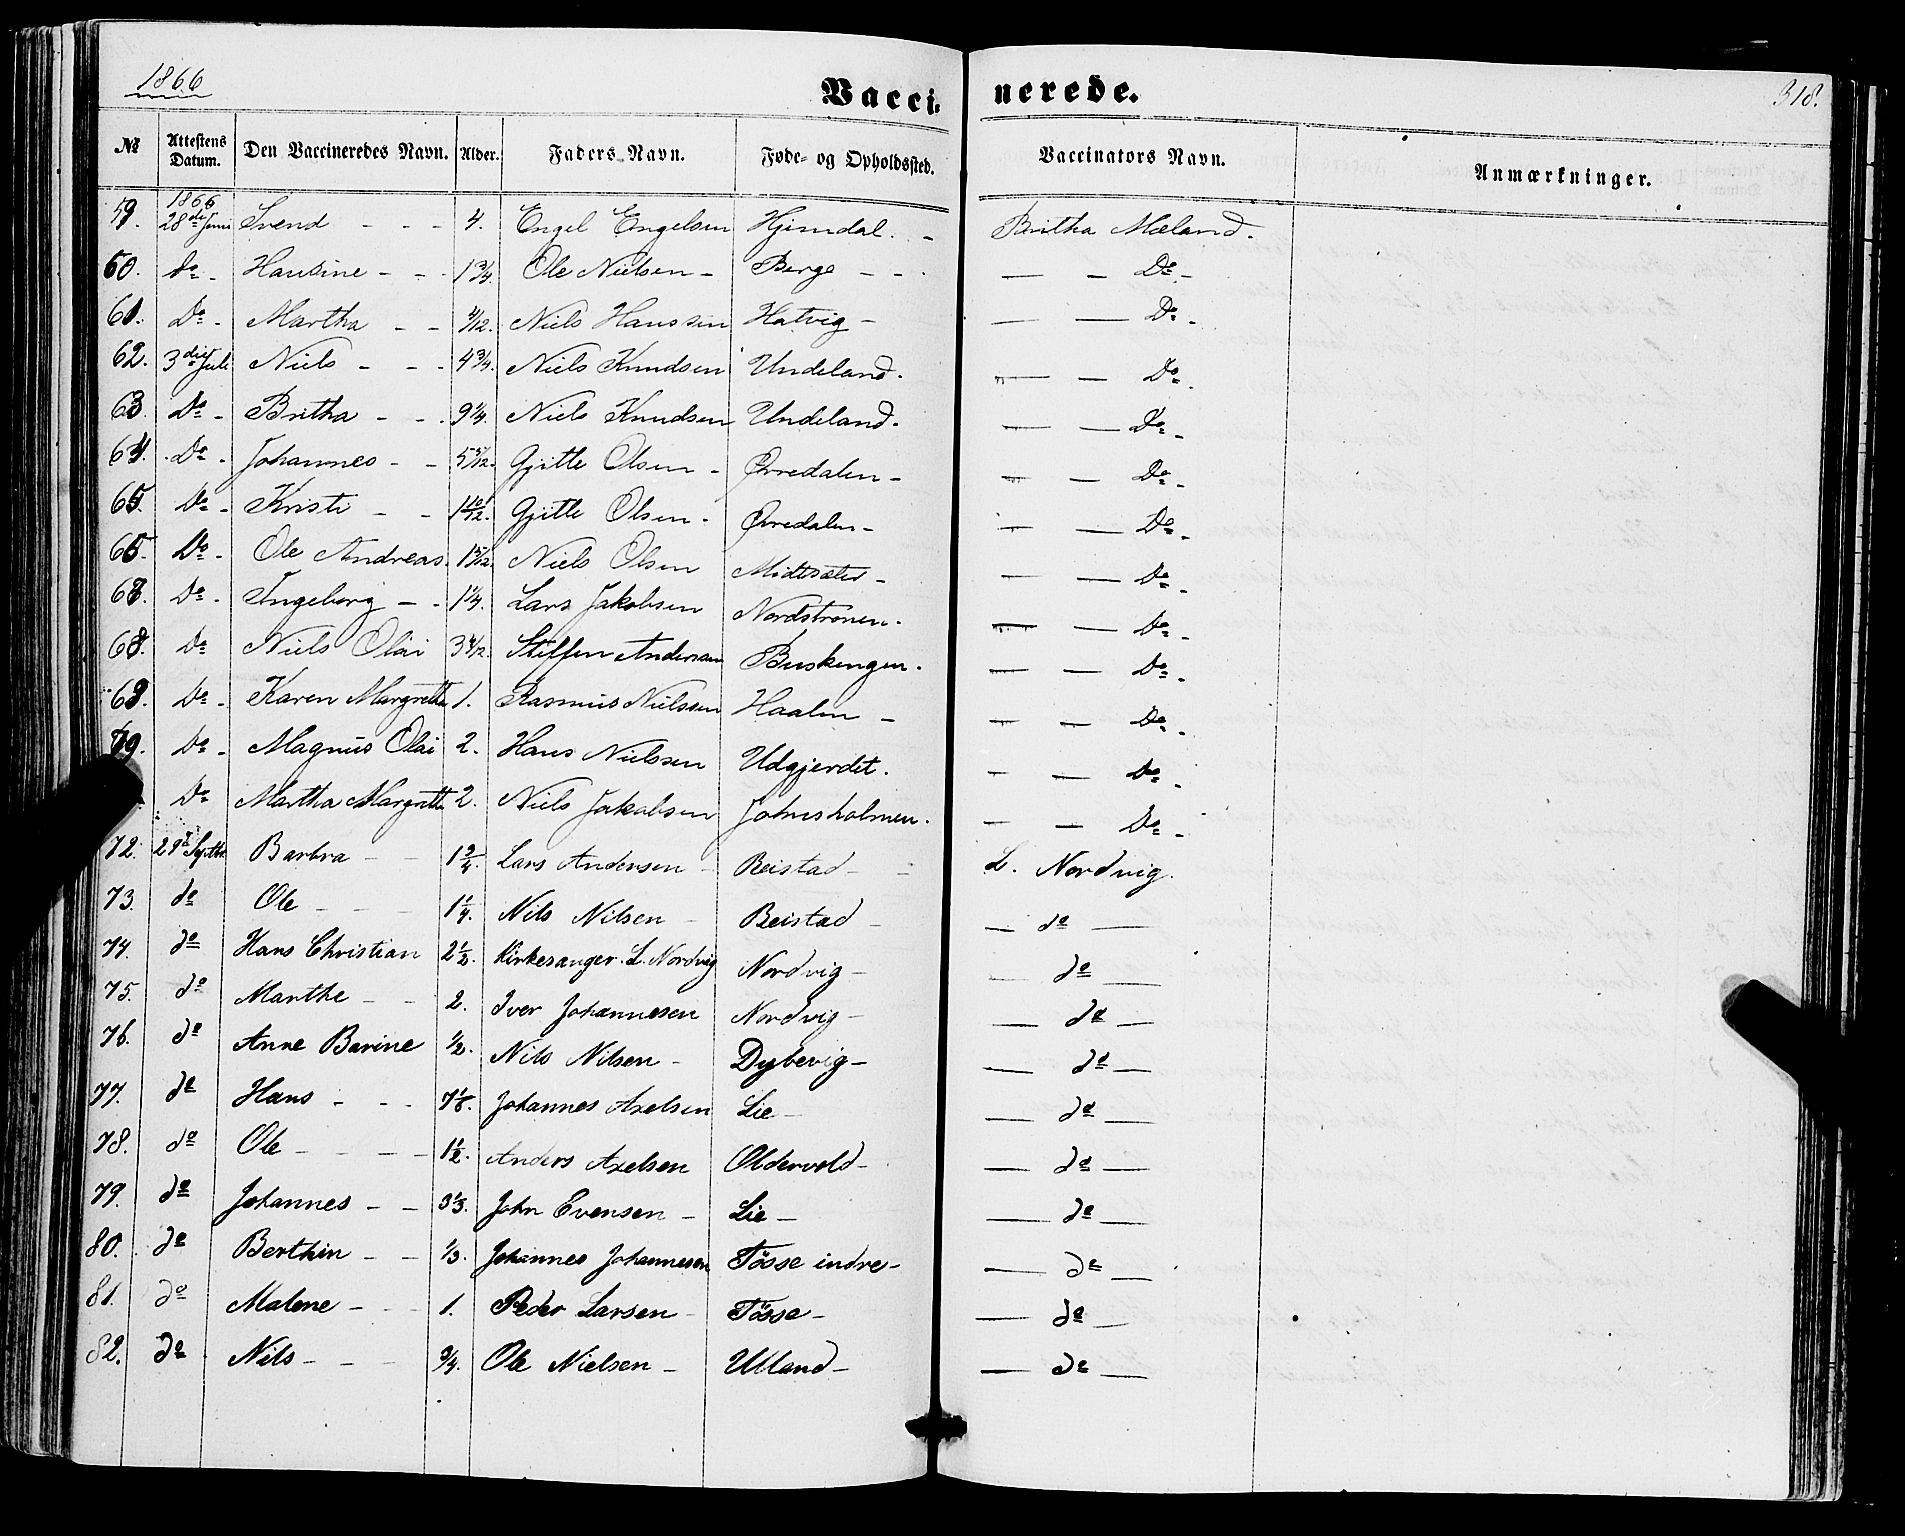 1866
Vaccinerede.
318.
№ | Attestens Datum. | Den Vaccineredes Navn. | Alder. | Faders Navn. | Føde- og Opholdssted. | Vaccinators Navn. | Anmærkninger.
59. 1866 28de Juni Svend - - - 4. Engel Engelsen Hjemdal. - Britha Mæland.
60. do - Hansine - - - 1 3/4. Ole Nielsen - Berge - - . — — Do -
61. Do - Martha - - 4/12. Niels Hanssen Hatvig - — — Do -
62. 3die Juli Niels - - - 4 3/4. Niels Knudsen Undeland. — — Do -
63. Do - Britha - - . 9 1/4. Niels Knudsen Undeland. — — Do -
64. Do - Johannes - - 5 5/12. Gjitle Olsen - Øvredalen - — — Do -
65. Do - Kristi - - 1 10/12. Gjitle Olsen - Øvredalen - — — Do -
66. Do - Ole Andreas. 1 5/12. Niels Olsen Midtsæter - — — Do -
67. Do - Ingeborg - - 1 1/4. Lars Jakobsen Nordstrønen. — — Do -
68. Do Niels Olai 3 4/12. Steffen Andersen Buskengen. — — Do -
69. Do - Karen Margrethe 1. Rasmus Nielssen Haalen - — — Do -
Do - Magnus Olai 2. Hans Nielssen Udgjerdet. — — Do -
Do Martha Margrethe 2. Niels Jakobsen Johnsholmen. — — Do -
72. 29de Septbr Barbra - - 1 3/4. Lars Andersen - Beistad - - L. Nordvig.
73. do Ole - - - 1 1/4. Nils Nilsen - Beistad - — do —
74. do Hans Christian 2 1/2. Kirkesanger L. Nordvig Nordvig - — do —
75. do Marthe - - 2. Iver Johannesen Nordvig - — do —
76. do Anne Barine 1/2. Nils Nilsen - Dybevig - — do —
77. do Hans - - - 7 1/6. Johannes Axelsen Lie - — do —
78. do Ole - - - - 1 1/2. Anders Axelsen Oldervold - — do —
79. do Johannes - - 3 1/3. John Evensen - Lie - — do —
80. do Berthin - - 1/3. Johannes Johannesen Tösse indre - — do —
81. do Malene - - 1. Peder Larsen - Tösse - — do —
82. do Nils - - - 3/4. Ole Nielsen - Ulland - — do —